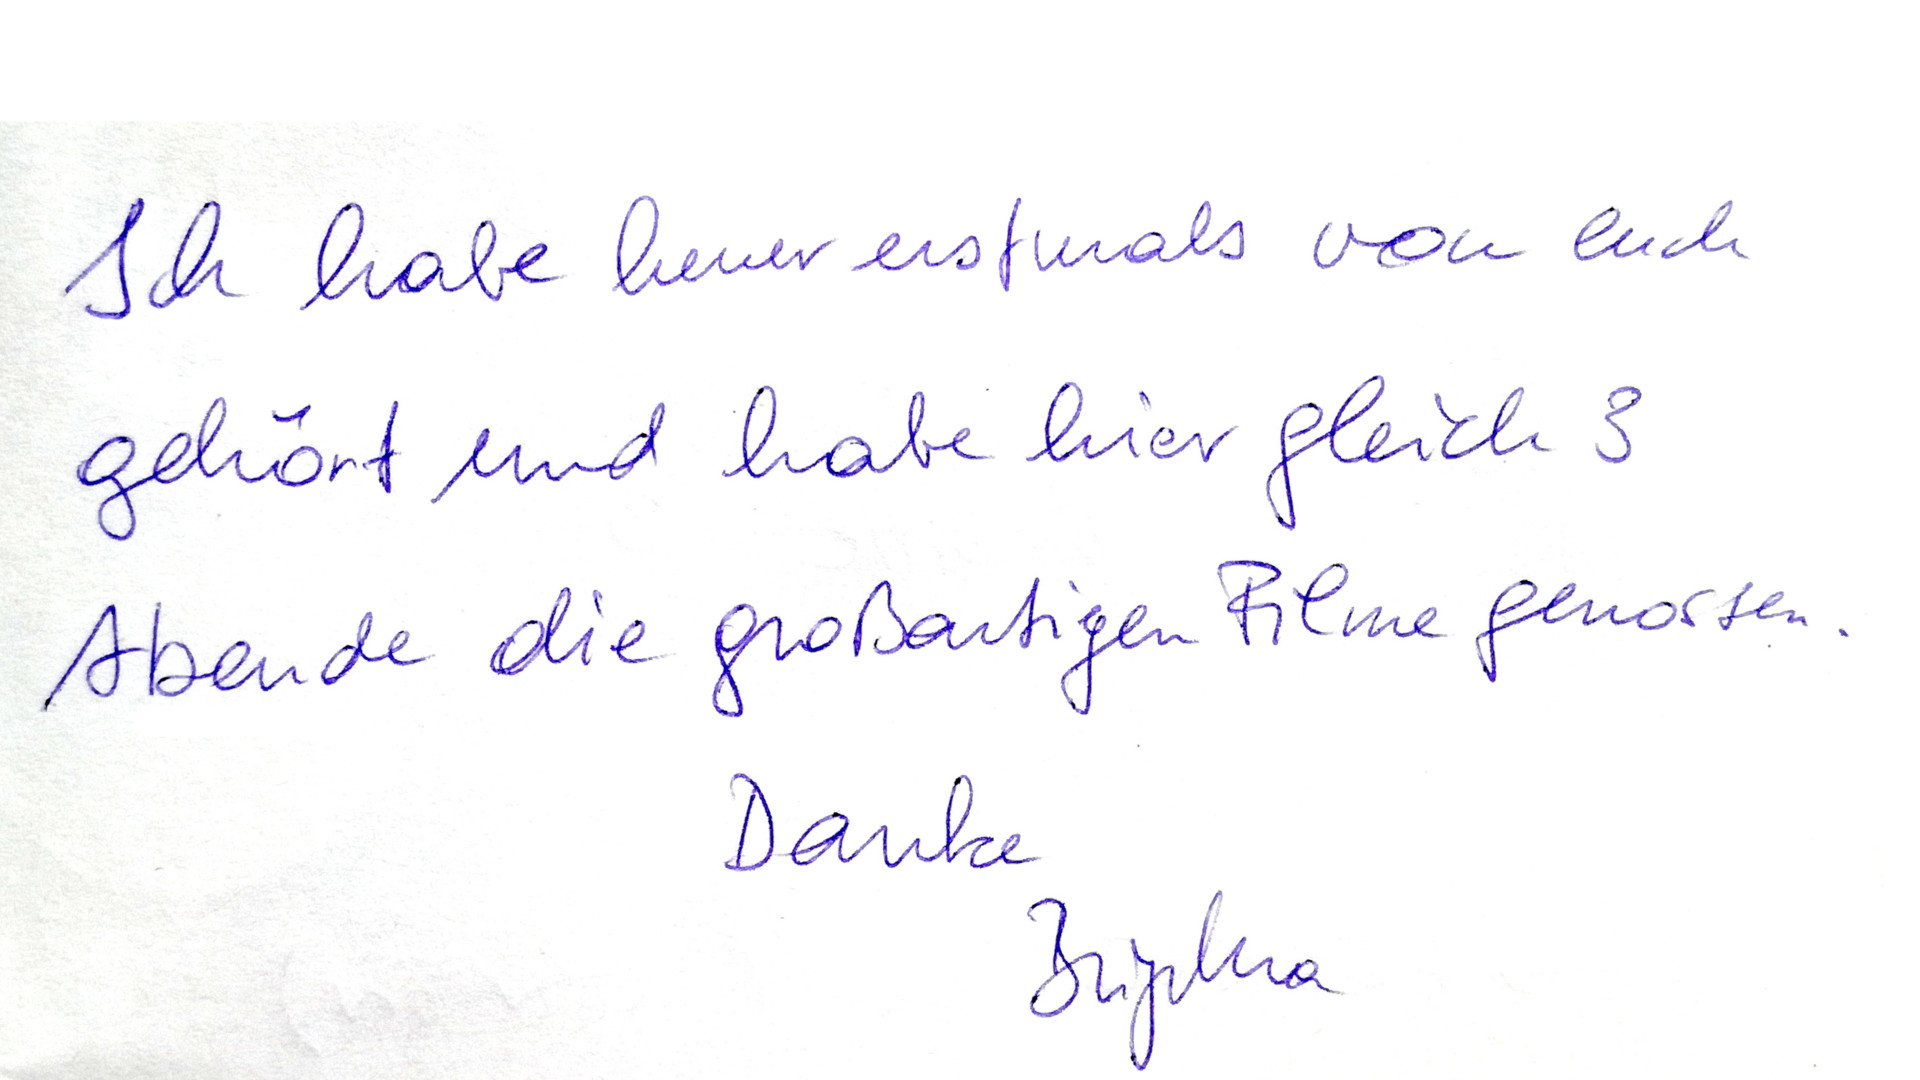 Ich habe heuer erstmals von euch
gehört und habe hier gleich 3
Abende die großartigen Filme genossen.
Danke